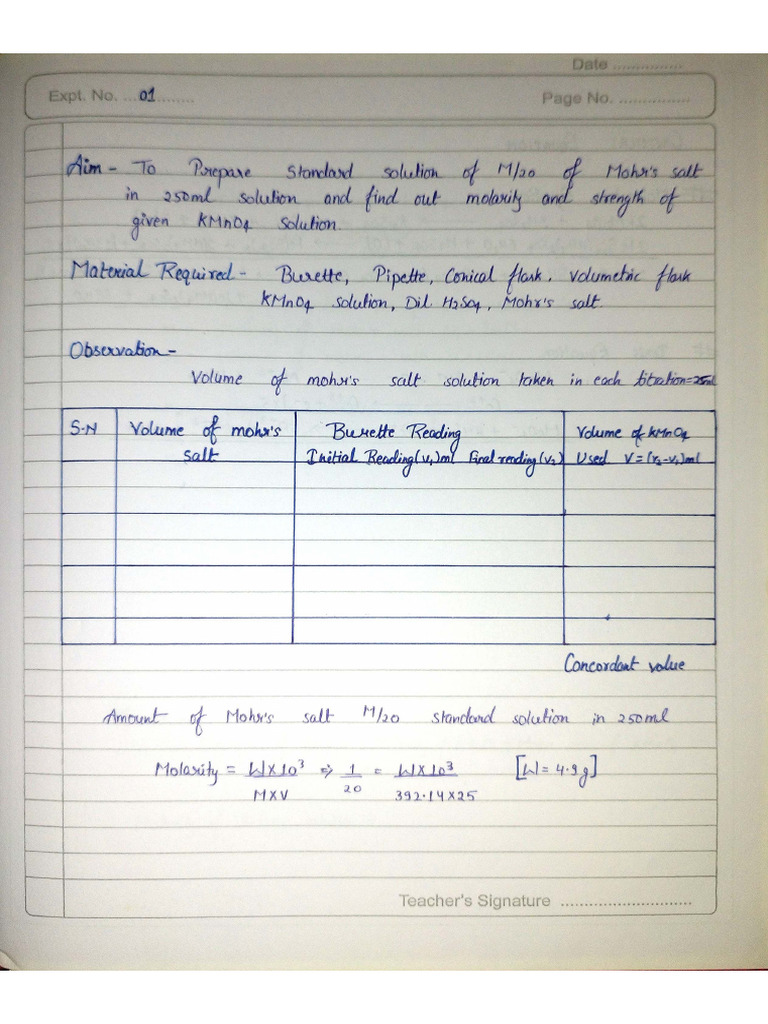 Date ...............
Expt. No. ... 01 ........
Page No. ................
Aim - To Prepare standard solution of M/20 of Mohr's salt
in 250ml solution and find out molarity and strength of
given KMnO4 solution.
Material Required - Burette, Pipette, Conical flask, Volumetric flask
KMnO4 solution, Dil H2SO4, Mohr's salt.
Observation -
Volume of mohr's salt solution taken in each titration=25ml
S.N Volume of mohr's Burette Reading Volume of KMnO4
salt Initial Reading(V1)ml Final reading(V2) Used V=(V2-V1)ml
Concordant value
Amount of Mohr's salt M/20 standard solution in 250ml
Molarity = W×10³ ⇒ 1 = W×10³ [W=4.9g]
M×V 20 392.14×25
Teacher's Signature ............................